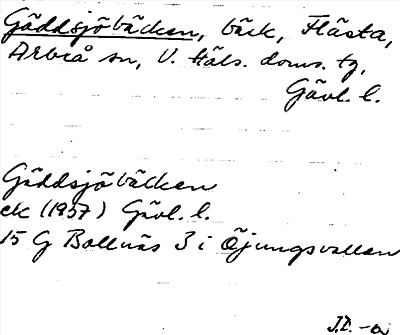 Gäddsjöbäcken, bäck, Flästa,
Arbrå sn, V. Häls. doms. tg,
Gävl. l.
Gäddsjöbäcken
ek (1957) Gävl. l.
15 G Bollnäs 3 i Öjungsvallen